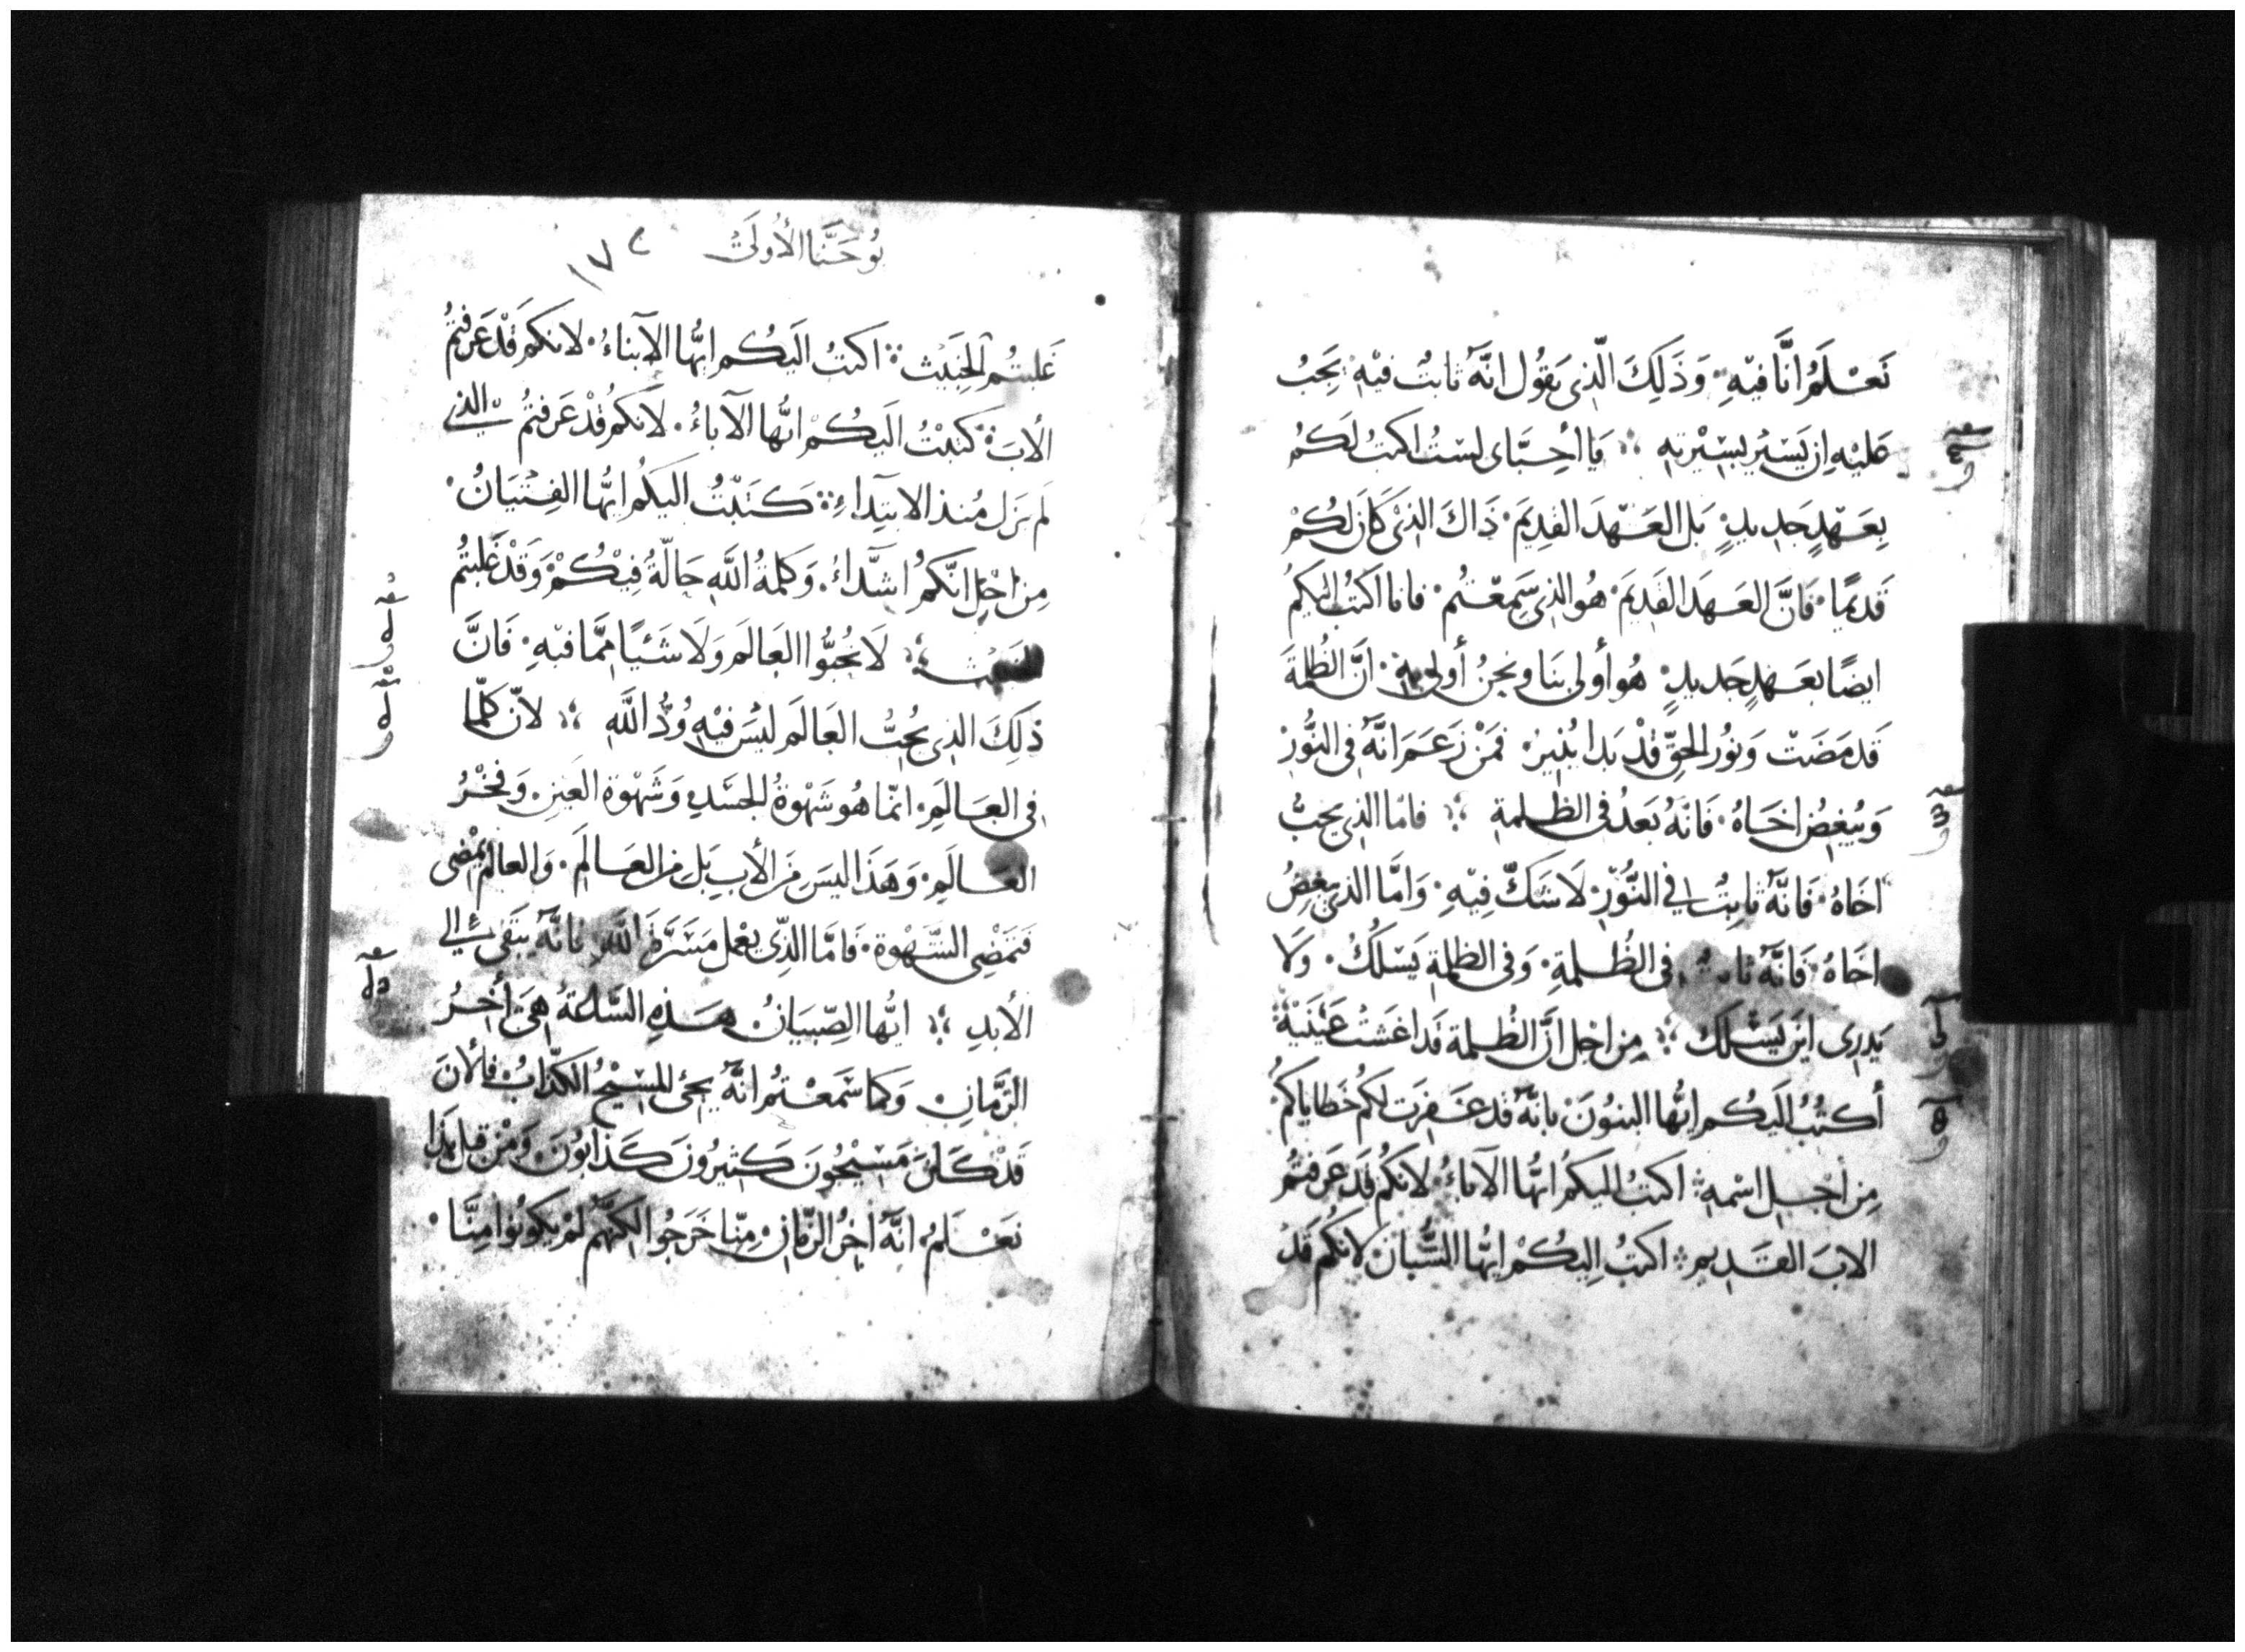 نَعْلَمُ انَّا فيْهِ وَذَلِكَ الَّذِى يَقُول انَّهُ ثابتُ فيْهِ يَجِبُ
عَليْهِ اِن يَسَيْر بسِيْرتهِ يَا احِبَّاى لسَتُ اكتبُ لَكمُ
بِعَهْدٍ جَديدٍ بَل العَهْدَ القدِيَم ذَاكَ الذِىْ كَانَ لكُمْ
قَديمًا فَانَّ العَهدَ القَدِيَم هُو الذِى سَمِعْتُم فانا اكتبُ اليَكمُ
ايضًا بعَهْدٍ جَديدٍ هُو أولى بنَا ونحنُ أولى بهِ انَّ الظُلمَةَ
قَد مَضَتْ وَنوُر الحقِّ قدْ بَدا يُنيرُ فَمَنْ زَعَمَ انَّهُ فى النُّورِ
وَيُبغِضُ اخَاهُ فَانّهُ بَعَدُ فى الظلمةِ فامّا الذِى يحبُّ
اخَاهُ فَانَّهُ ثابتُ فى النُّوْرِ لَا شَكَّ فِيْهِ وَامَّا الذى يبغضُ
اخَاهُ فَانَّهُ ثابتُ فى الظُلمةِ وَفى الظلمةِ يَسَلكُ وَلا
يَدرِى ايَن يَسْلكَ مِن اجْل انَّ الظُلمة قَد اغشَتْ عَيْنَيْهِ
أكتُبُ الَيكُم ايُّها البنوُنَ بانَّهُ قدَ غفِرَت لكمُ خَطاياكمُ
مِن اجْل اسْمهِ اكتبُ اليكمُ ايُّها الاباءُ لانكمُ قَدَ عَرفتُمُ
الابَ القَديم اكتبُ اليكُمْ ايُّها الشُّبانُ لانكُم قَدْ
يُوحَنَّا الأولَىْ ١٧٢
غَلبتُم الخَبيَث اكتبُ اليَكُم ايُّها الابناءُ لانكمُ قدْ عَرفتُمُ
الأبَ كتبْتُ اليَكُمْ ايُّها الآباءُ لانكمُ قدْ عَرفتُمُ الذى
لم يزَل مُنذ الابتِداءِ كَتَبْتُ اليكُم ايُّها الفِتْيَانُ
مِن اجْل انَّكمُ اشدَّاءُ وَكلمةُ اللّهِ حَالّةُ فِيْكُمْ وَقَدْ غَلبتُمُ
الخبيْث لَا تُحِبُّوا العَالَم وَلَا شَئيًا ممَّا فيْهِ فَانَّ
ذَلِكَ الذِى يُحِبُّ العَالَم ليْسَ فيْهِ وُدُّ اللّهِ لانّ كلّما
فى العَالَمِ انّما هُو شَهْوةُ الجسَدِ وَشَهْوة العَينِ وَفخْرُ
العَالَمِ وَهَذا ليسَ مَن الأبِ بَل مِن العَالَمِ وَالعالمُ يمْضى
فَتمَضِى الشَّهْوة فَامَّا الذِى يعْمل مَسَرَّةَ اللّهِ فانَّهُ يَبَقى الى
الأبدِ ايُّها الصِّبيَانُ هَذِهِ السَّاعةُ هىَ أخِرُ
الزَّمانِ وَكما سَمَعْتمُ انَّهُ يجَئ المسِيْحُ الكذّابُ فالأنَ
قدْ كَانَ مَسَيْحيُونَ كثيرُونَ كَذّابُونَ وَمْن قبل هَذا
نَعْلمُ انَّهُ اخِرُ الزّمانِ مِنّا خَرَجُوا لكنَّهُم لمْ يكونُوا مِنَّا